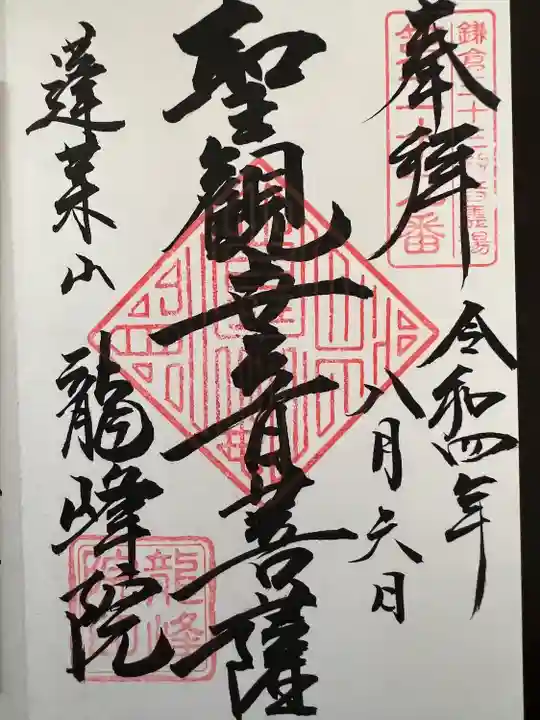 奉拝
鎌倉三十三所観音霊場
番
令和四年
八月六日
聖観世音菩薩
蓬莱山
龍峰院
龍峰